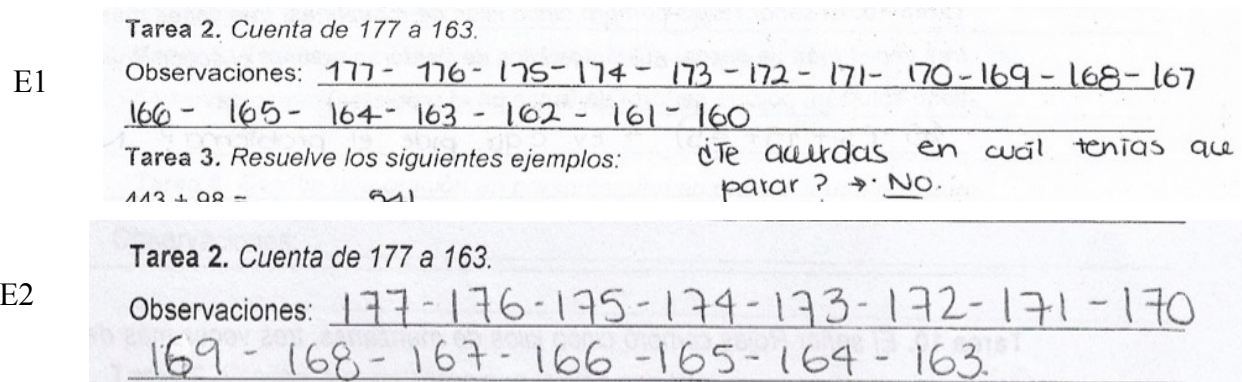 Tarea 2. Cuenta de 177 a 163.
E1
Observaciones: 177 - 776 - 175 - 174 - 173 - 172 - 171 - 170 - 169 - 168 - 167
166 - 165 - 164 - 163 - 162 - 161 160
Tarea 3. Resuelve los siguientes ejemplos:
¿Te acuerdas en cuál tenías que
parar? → NO.
443 + 98 =
Tarea 2. Cuenta de 177 a 163.
E2
Observaciones: 177 - 176 - 175 - 174 - 173 - 172 - 171 - 170
169 - 168 - 167 - 166 - 165 - 164 - 163.